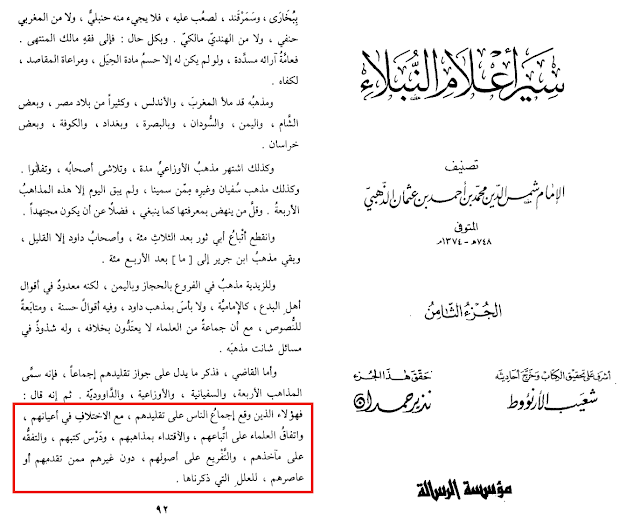 سير أعلام النبلاء
تصنيف
الإمام شمس الدين محمد بن أحمد بن عثمان الذهبي
المتوفى
٧٤٨هـ - ١٣٧٤م
الجزء الثامن
أشرف على تحقيق الكتاب وخرج أحاديثه
شعيب الأرنؤوط
حقق هذا الجزء
نذير حمدان
مؤسسة الرسالة
بِبُخَارَى، وسَمَرْقَند ، لصعُب عليه ، فلا يجيء منه حنبليٌّ ، ولا من المغربي
حنفي ، ولا من الهنديِّ مالكيٌّ . وبكل حال : فإلى فقهِ مالك المنتهى .
فعامَّةُ آرائه مسدَّدة ، ولو لم يكن له إلا حسمُ مادة الحِيَل ، ومراعاةُ المقاصد ،
لكفاه .
ومذهبُه قد ملأ المغربَ ، والأندلس ، وكثيراً من بلاد مصر ، وبعض
الشَّام ، واليمن ، والسُّودان ، وبالبصرة ، وبغداد ، والكوفة ، وبعض
خراسان .
وكذلك اشتهر مذهبُ الأوزاعيِّ مدة ، وتلاشى أصحابُه ، وتفانَوا .
وكذلك مذهب سُفيان وغيرِه مِمّن سمينا ، ولم يبق اليوم إلا هذه المذاهبُ
الأربعةُ . وقلَّ من ينهض بمعرفتها كما ينبغي ، فضلًا عن أن يكون مجتهداً .
وانقطع أتْباعُ أبي ثور بعد الثلاثِ مئة ، وأصحابُ داود إلا القليل ،
وبقي مذهبُ ابن جرير إلى [ ما ] بعد الأربعِ مئة .
وللزيدية مذهبٌ في الفروع بالحجاز وباليمن ، لكنه معدودٌ في أقوال
أهلِ البدع ، كالإماميَّة ، ولا بأسَ بمذهب داود ، وفيه أقوالٌ حسنة ، ومتابَعةٌ
للنُّصوص ، مع أن جماعةً من العلماء لا يعتدُّون بخلافه ، وله شذوذٌ في
مسائل شانت مذهبَه .
وأما القاضي ، فذكر ما يدل على جواز تقليدهم إجماعاً ، فإنه سمَّى
المذاهب الأربعة، والسفيانية ، والأوزاعية ، والدَّاووديَّة . ثم إنه قال :
فهؤلاء الذين وقع إجماعُ الناس على تقليدهم ، مع الاختلافِ في أعيانهم ،
واتفاقُ العلماء على اتِّباعهم ، والاقتداء بمذاهبهم ، ودَرْس كتبهم ، والتفقُّه
على مآخذهم ، والتَّفْريع على أصولهم ، دون غيرهم ممن تقدمهم أو
عاصرهم ، للعلل التي ذكرناها .
٩٢